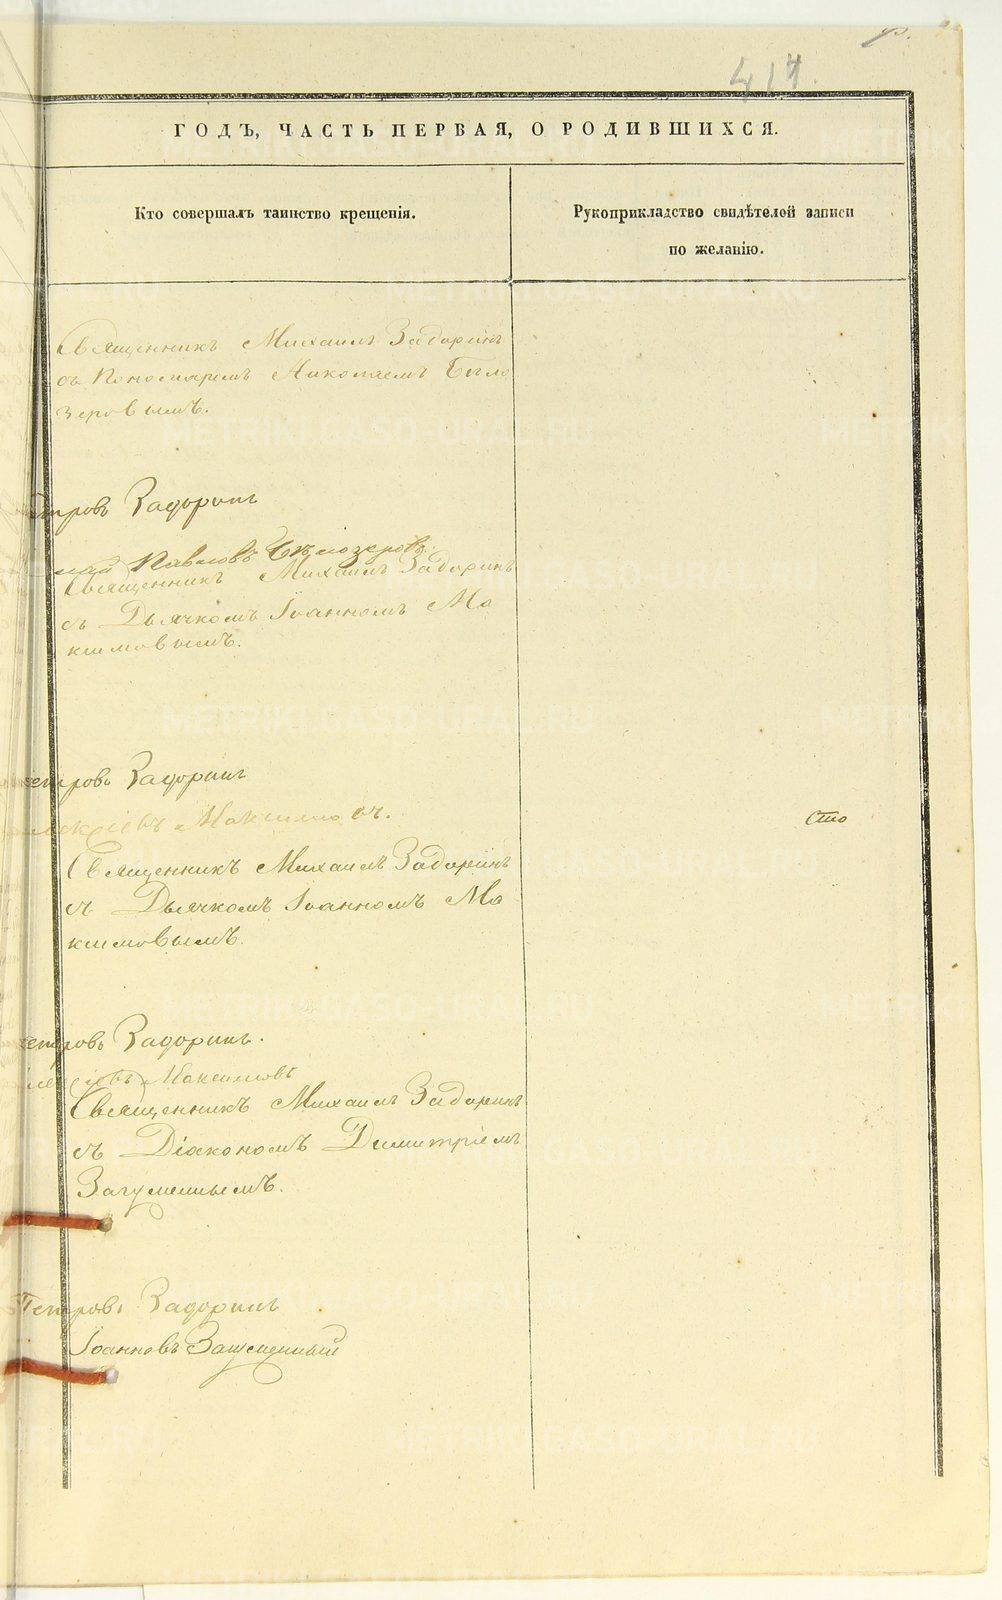 417.
ГОДЪ, ЧАСТЬ ПЕРВАЯ, О РОДИВШИХСЯ.
Кто совершалъ таинство крещенія.
Рукоприкладство свидѣтелей записи
по желанію.
Священникъ Михаилъ Задоринъ
съ Пономаремъ Николаемъ Бѣло
зеровымъ.
Петровъ Задоринъ
Павловъ Бѣлозеровъ.
Священникъ Михаилъ Задоринъ
съ Дьячкомъ Іоанномъ Ма
ксимовымъ.
Петровъ Задоринъ
Алексіевъ Максимовъ.
Сто
Священникъ Михаилъ Задоринъ
съ Дьячкомъ Іоанномъ Ма
ксимовымъ.
Петровъ Задоринъ.
Алексіевъ Максимовъ
Священникъ Михаилъ Задоринъ
съ Діакономъ Димитріемъ
Загуменнымъ.
Петровъ Задоринъ
Іоанновъ Загуменный
METRIKI.GASO-URAL.RU